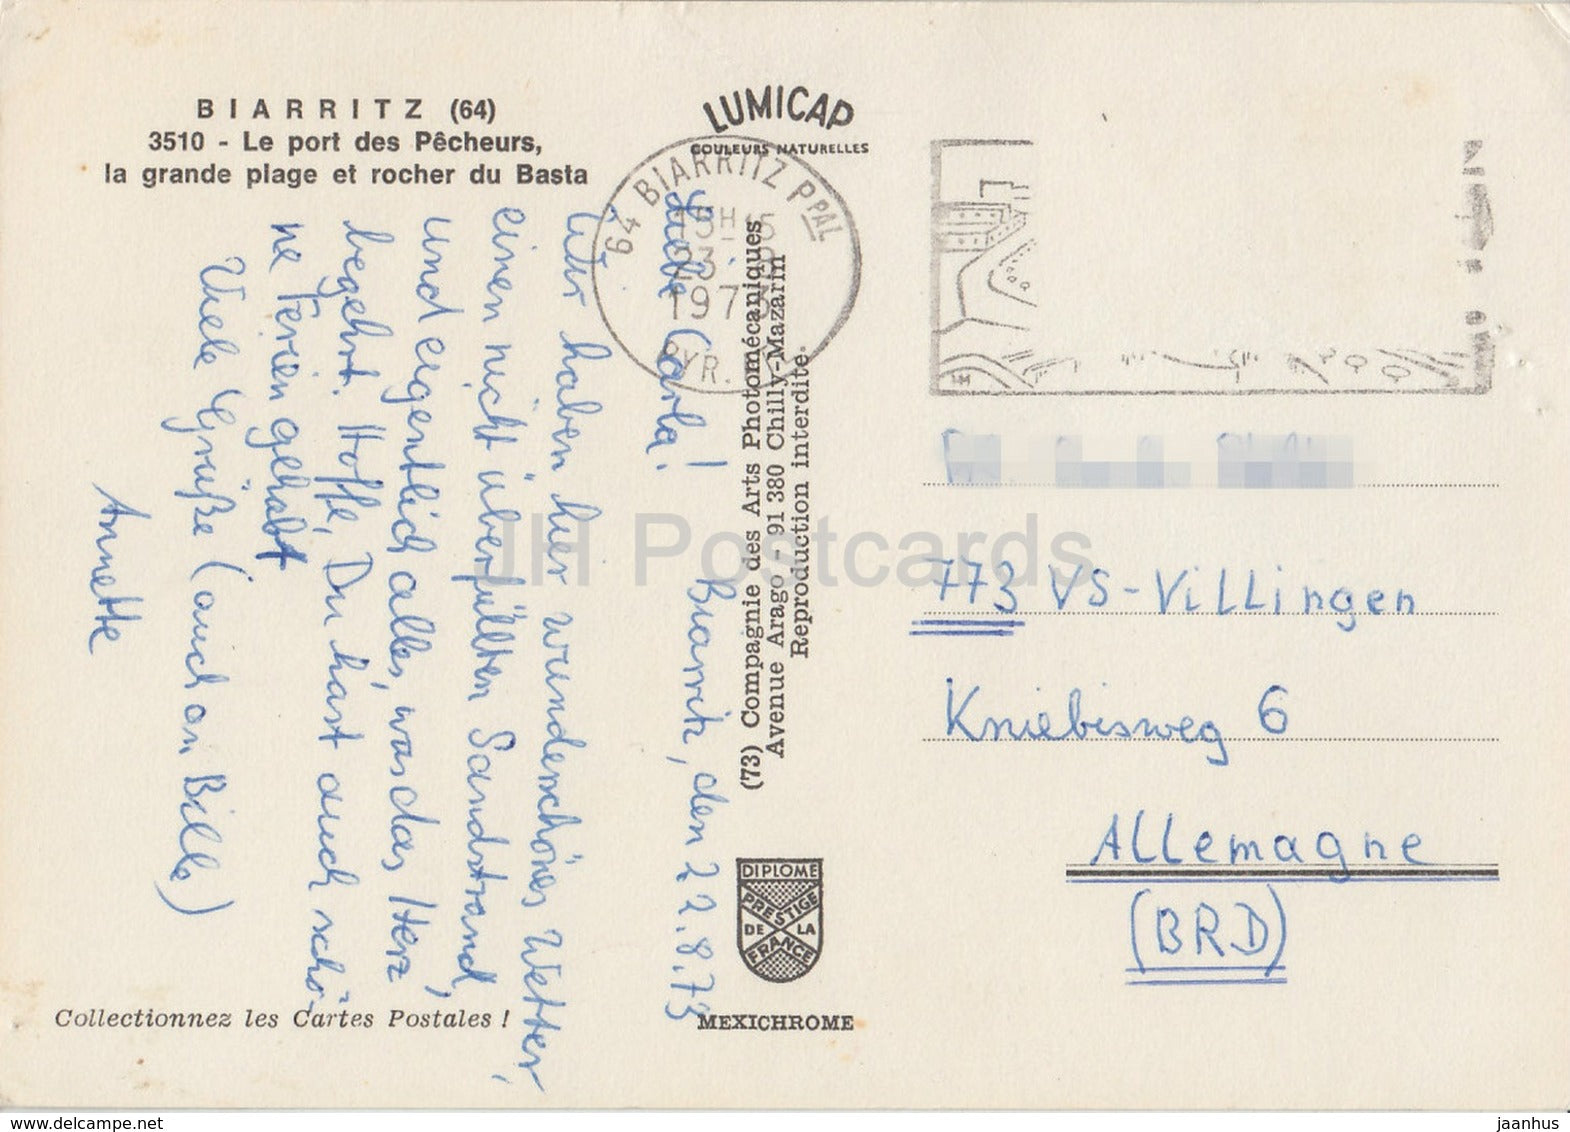 BIARRITZ (64)
3510 - Le port des Pêcheurs,
la grande plage et rocher du Basta
LUMICAP
COULEURS NATURELLES
64 BIARRITZ PPAL
23
1973
PYR.
Biarritz, den 22.8.73
Liebe Carla!
Wir haben hier wunderschönes Wetter,
einen nicht überfüllten Sandstrand,
und eigentlich alles, was das Herz
begehrt. Hoffe, Du hast auch schö-
ne Ferien gehabt
Viele Grüße (auch an Billa)
Annette
(73) Compagnie des Arts Photomécaniques
Avenue Arago - 91 380 Chilly-Mazarin
Reproduction interdite.
773 VS-Villingen
Kniebisweg 6
Allemagne
(BRD)
DIPLOME
PRESTIGE
DE LA
FRANCE
MEXICHROME
Collectionnez les Cartes Postales !
JH Postcards
www.delcampe.net
jaanhus